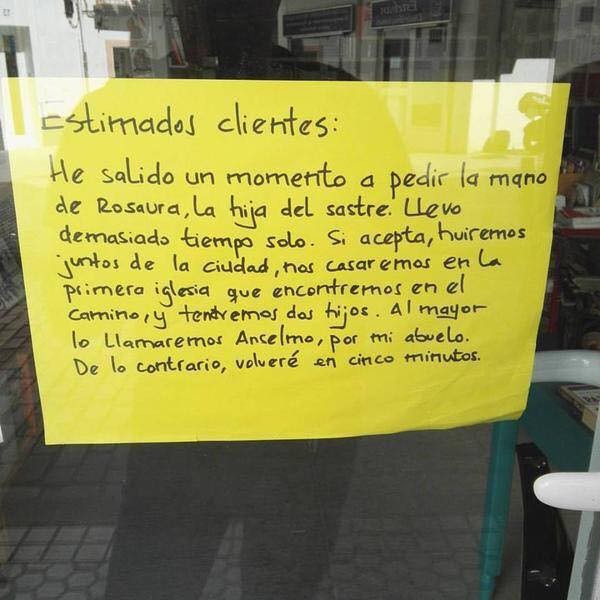 Estimados clientes:
He salido un momento a pedir la mano
de Rosaura, la hija del sastre. Llevo
demasiado tiempo solo. Si acepta, huiremos
juntos de la ciudad, nos casaremos en la
primera iglesia que encontremos en el
camino, y tendremos dos hijos. Al mayor
lo llamaremos Anselmo, por mi abuelo.
De lo contrario, volveré en cinco minutos.